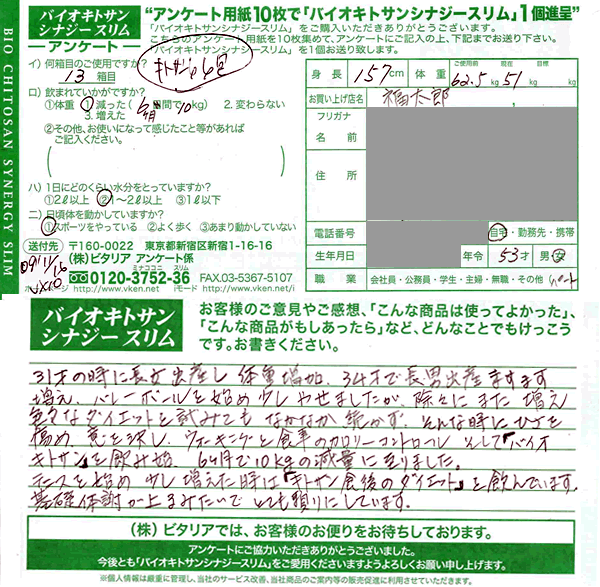 バイオキトサン
シナジースリム
アンケート
BIO CHITOSAN SYNERGY SLIM
“アンケート用紙10枚で「バイオキトサンシナジースリム」1個進呈”
「バイオキトサンシナジースリム」をご購入いただきありがとうございます。
こちらのアンケート用紙を10枚集めて、アンケートにご記入の上、下記までお送り下さい。
「バイオキトサンシナジースリム」を1個お送り致します。
イ) 何箱目のご使用ですか?
13 箱目
キトサン
ロ) 飲まれていかがですか?
①体重 1.減った(6ヶ月間で10kg) 2.変わらない
3.増えた
②その他、お使いになって感じたこと等があれば
ご記入ください。
ハ) 1日にどのくらい水分をとっていますか?
①2ℓ以上 ②1〜2ℓ以上 ③1ℓ以下
ニ) 日頃体を動かしていますか?
①スポーツをやっている ②よく歩く ③あまり動かしていない
身長 157cm 体重 62.5kg 現在 51 目標 kg
お買い上げ店名 福太郎
フリガナ
名前
住所
電話番号 自宅・勤務先・携帯
生年月日 年令 53才 男・女
職業 会社員・公務員・学生・主婦・無職・その他 パート
送付先 〒160-0022 東京都新宿区新宿1-16-16
(株) ビタリア アンケート係
ミナココニ スリム
0120-3752-36 FAX.03-5367-5107
09/11/16
ホームページ http://www.vken.net/ iモード http://www.vken.net/i
バイオキトサン
シナジースリム
お客様のご意見やご感想、「こんな商品は使ってよかった」、
「こんな商品がもしあったら」など、どんなことでもけっこう
です。お書きください。
31才の時に長女出産し 体重増加、34才で長男出産ますます
増え、バレーボールを始め少しやせましたが、除々にまた増え
色々なダイエットを試みてもなかなか続かず、そんな時にひざを
痛め、意を決し、ウォーキングと食事のカロリーコントロール そして「バイオ
キトサン」を飲み始、6ヶ月で10kgの減量に至りました。
テニスを始め 少し増えた時は「キトサン食後のダイエット」を飲んでいます。
基礎体謝が上るみたいで とても頼りにしています。
(株) ビタリアでは、お客様のお便りをお待ちしております。
アンケートにご協力いただきありがとうございました。
今後とも「バイオキトサンシナジースリム」をご愛用くださいますようよろしくお願い申し上げます。
※個人情報は厳重に管理し、当社のサービス改善、当社商品のご案内等の販売促進に利用させていただきます。